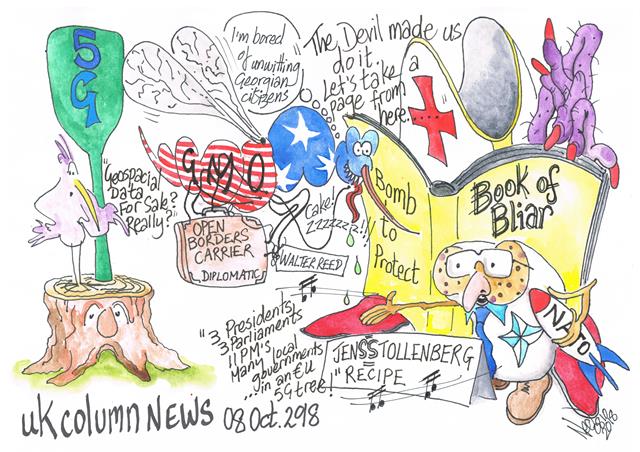 5G
I'm bored
of unwitting
Georgian
citizens
The Devil made us
do it
Let's take a
page from
here....
"Geospacial
Data
For Sale?
Really?"
GMO
OPEN
BORDERS
CARRIER
DIPLOMATIC
Cake!
ZZZzzzz..!!
WALTER REED
Bomb
to
Protect
Book of
Bliar
NATO
"3 Presidents
3 Parliaments
11 PM's
Many local
governments
...in an €U
5G tree!"
JENSSTOLLENBERG
"RECIPE"
UK COLUMN NEWS 08 Oct. 2918